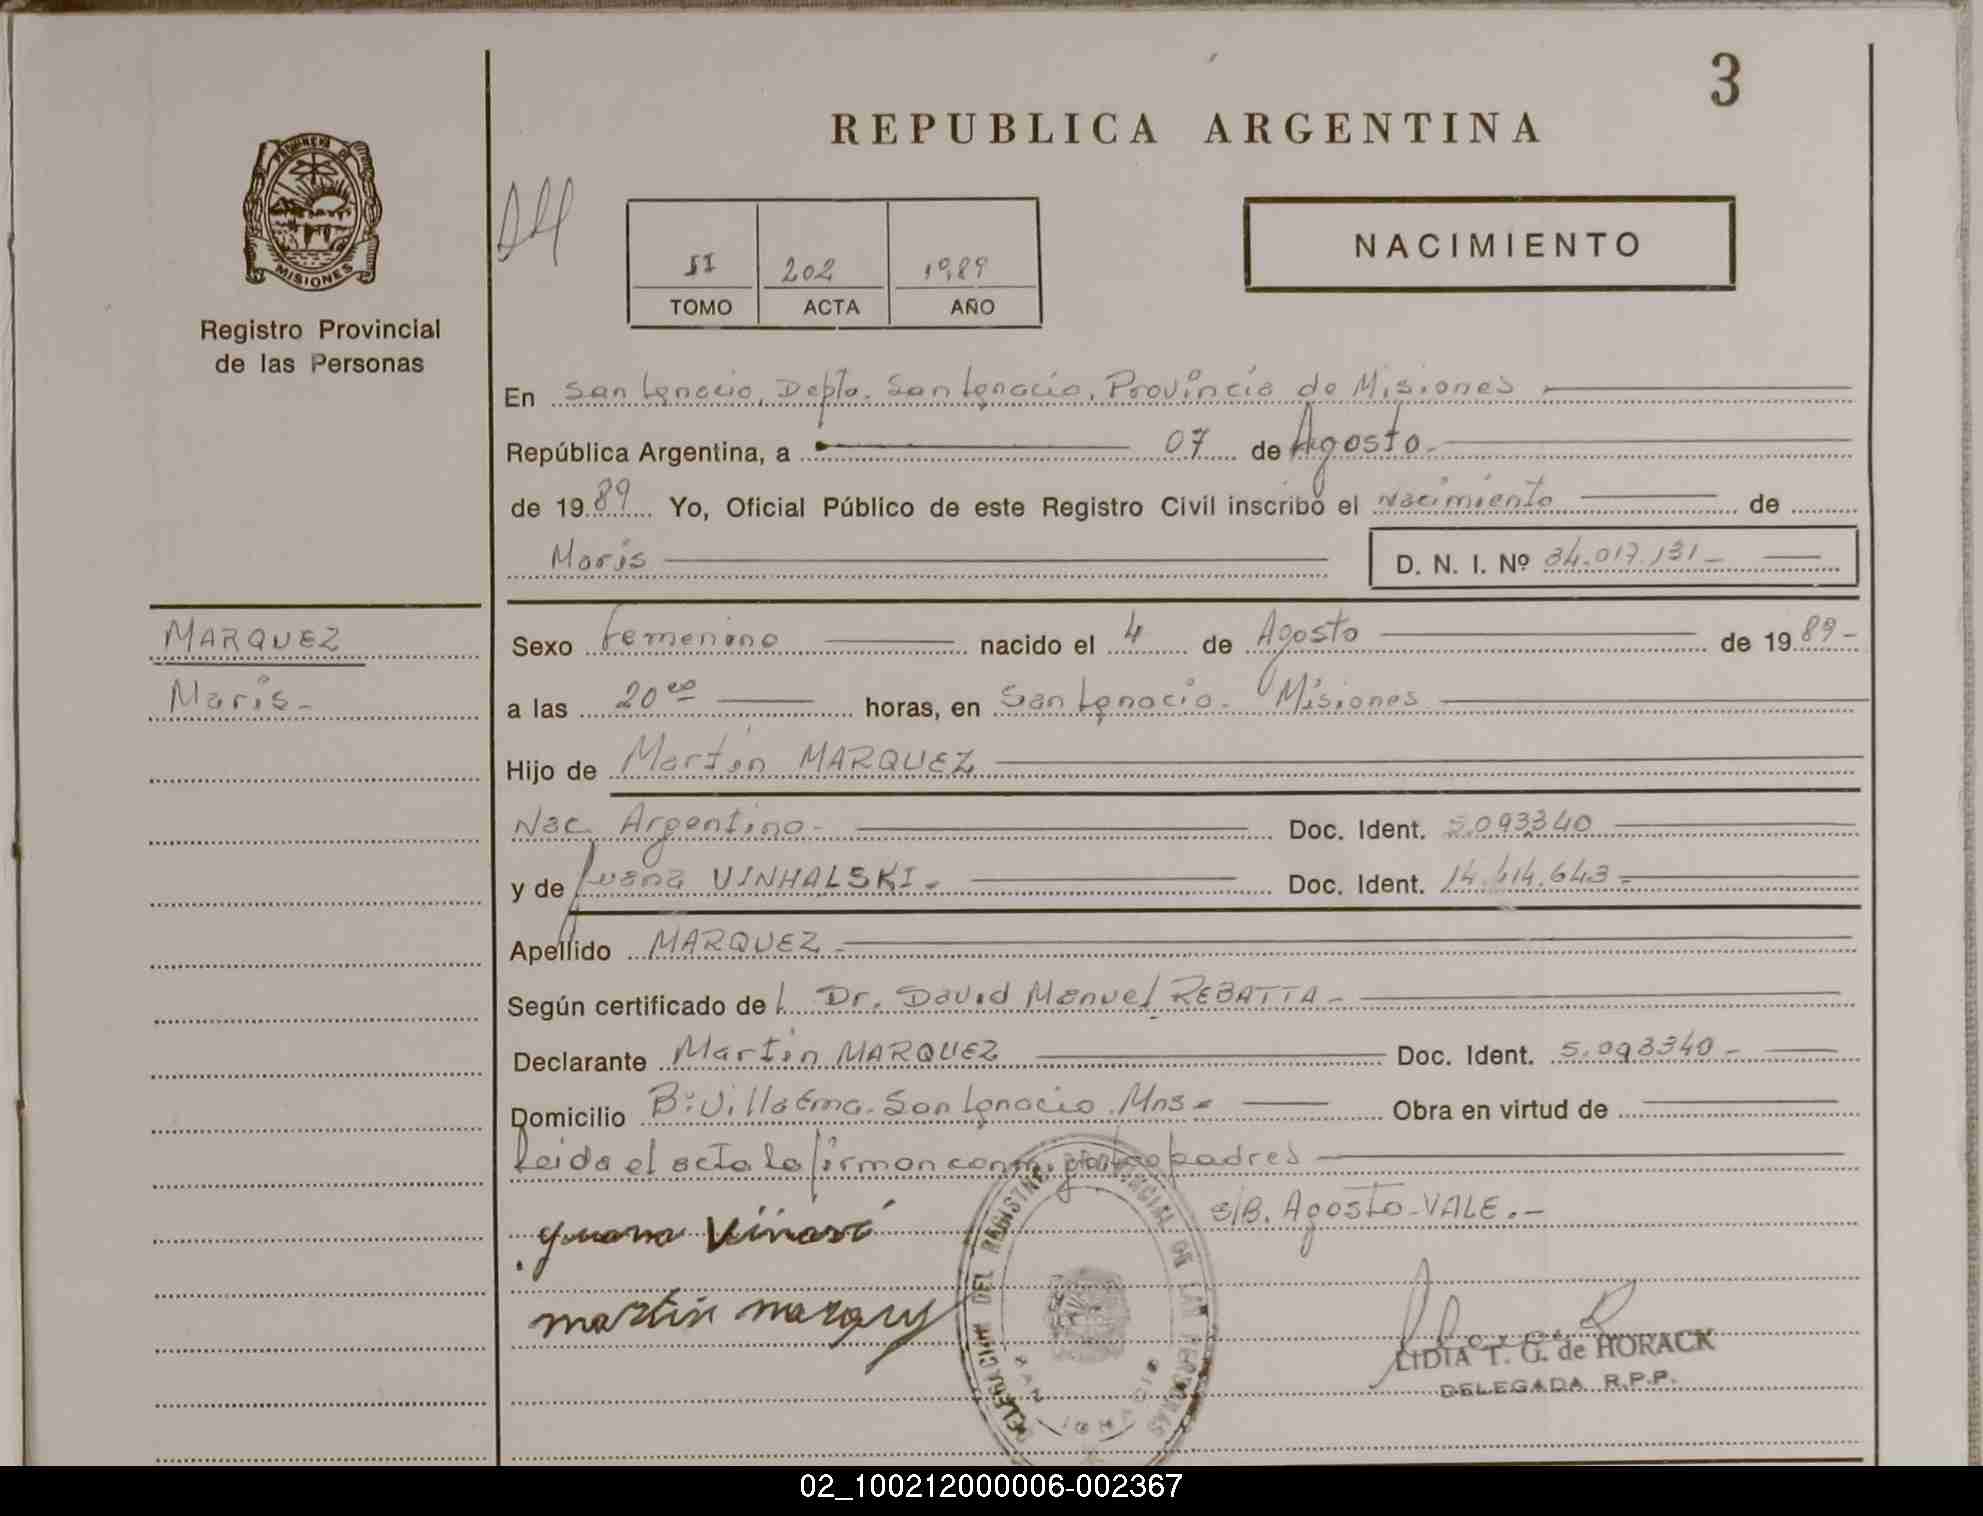 3
REPUBLICA ARGENTINA
PROVINCIA DE
MISIONES
Registro Provincial
de las Personas
II 202 1989
TOMO ACTA AÑO
NACIMIENTO
En San Ignacio, Depto. San Ignacio, Provincia de Misiones
República Argentina, a 07 de Agosto.
de 1989 Yo, Oficial Público de este Registro Civil inscribo el Nacimiento de
Maris D. N. I. Nº 34.017.131-
MARQUEZ
Maris-
Sexo Femenino nacido el 4 de Agosto de 1989-
a las 20 horas, en San Ignacio- Misiones
Hijo de Martin MARQUEZ
Nac. Argentino- Doc. Ident. 5.093340
y de Juana VINHALSKI. Doc. Ident. 14.414.643-
Apellido MARQUEZ-
Según certificado del Dr. David Manuel REBATTA-
Declarante Martin MARQUEZ Doc. Ident. 5.093340-
Domicilio Bº Villa Ema. San Ignacio. Mns- Obra en virtud de
Leida el acta la firman conmigo padres
S/B. Agosto-VALE.-
martin
DELEGACION DEL REGISTRO PROVINCIAL DE LAS PERSONAS
SAN IGNACIO
LIDIA T. G. de HORACK
DELEGADA R.P.P.
02_100212000006-002367